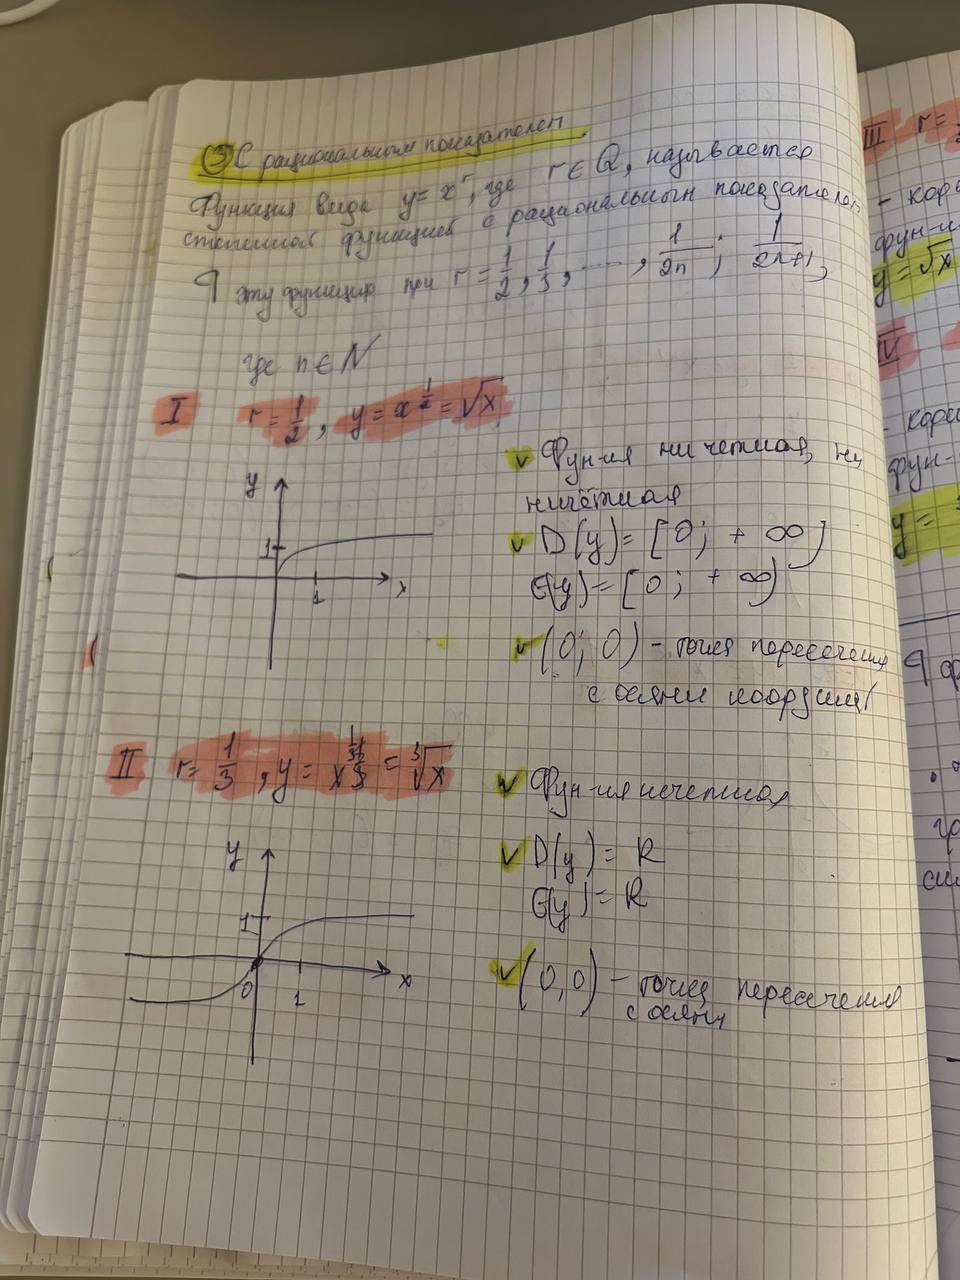 ③ С рациональным показателем.
Функция вида y = x^r, где r ∈ Q, называется
степенной функцией с рациональным показателем
эту функцию при r = 1/2, 1/3, ..., 1/2n; 1/2n+1,
где n ∈ N
I r = 1/2, y = x^1/2 = √x
y
1
1
x
v Фун-ия ни четная, ни
ничётная
v D(y) = [0; + ∞)
E(y) = [0; + ∞)
v (0; 0) - точка пересечения
с осями координат
II r = 1/3, y = x^1/3 = ³√x
y
1
0
1
x
v Фун-ия нечетная
v D(y) = R
E(y) = R
v (0,0) - точка пересечения
с осями
III r =
- кор
фун-и
y = √x
IV
- кор
фун-
y =